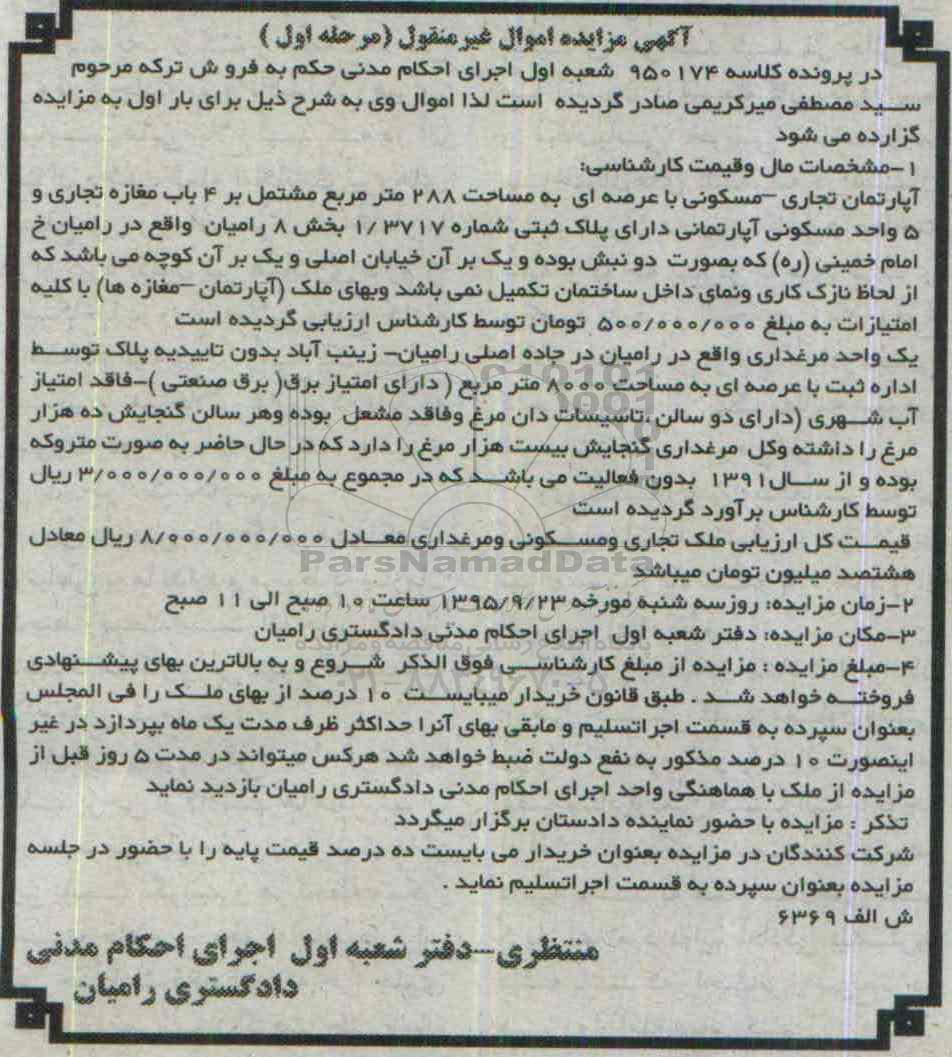 آگهی مزایده اموال غیرمنقول (مرحله اول )
در پرونده کلاسه ۹۵۰۱۷۴ شعبه اول اجرای احکام مدنی حکم به فروش ترکه مرحوم
سید مصطفی میرکریمی صادر گردیده است لذا اموال وی به شرح ذیل برای بار اول به مزایده
گزارده می شود
۱-مشخصات مال وقیمت کارشناسی:
آپارتمان تجاری -مسکونی با عرصه ای به مساحت ۲۸۸ متر مربع مشتمل بر ۴ باب مغازه تجاری و
۵ واحد مسکونی آپارتمانی دارای پلاک ثبتی شماره ۱/۳۷۱۷ بخش ۸ رامیان واقع در رامیان خ
امام خمینی (ره) که بصورت دو نبش بوده و یک بر آن خیابان اصلی و یک بر آن کوچه می باشد که
از لحاظ نازک کاری ونمای داخل ساختمان تکمیل نمی باشد وبهای ملک (آپارتمان -مغازه ها) با کلیه
امتیازات به مبلغ ۵۰۰/۰۰۰/۰۰۰ تومان توسط کارشناس ارزیابی گردیده است
یک واحد مرغداری واقع در رامیان در جاده اصلی رامیان- زینب آباد بدون تاییدیه پلاک توسط
اداره ثبت با عرصه ای به مساحت ۸۰۰۰ متر مربع ( دارای امتیاز برق( برق صنعتی )-فاقد امتیاز
آب شهری (دارای دو سالن ،تاسیسات دان مرغ وفاقد مشعل بوده وهر سالن گنجایش ده هزار
مرغ را داشته وکل مرغداری گنجایش بیست هزار مرغ را دارد که در حال حاضر به صورت متروکه
بوده و از سال۱۳۹۱ بدون فعالیت می باشد که در مجموع به مبلغ ۳/۰۰۰/۰۰۰/۰۰۰ ریال
توسط کارشناس برآورد گردیده است
قیمت کل ارزیابی ملک تجاری ومسکونی ومرغداری معادل ۸/۰۰۰/۰۰۰/۰۰۰ ریال معادل
هشتصد میلیون تومان میباشد
۲-زمان مزایده: روزسه شنبه مورخه ۱۳۹۵/۹/۲۳ ساعت ۱۰ صبح الی ۱۱ صبح
۳-مکان مزایده: دفتر شعبه اول اجرای احکام مدنی دادگستری رامیان
۴-مبلغ مزایده : مزایده از مبلغ کارشناسی فوق الذکر شروع و به بالاترین بهای پیشنهادی
فروخته خواهد شد . طبق قانون خریدار میبایست ۱۰ درصد از بهای ملک را فی المجلس
بعنوان سپرده به قسمت اجراتسلیم و مابقی بهای آنرا حداکثر ظرف مدت یک ماه بپردازد در غیر
اینصورت ۱۰ درصد مذکور به نفع دولت ضبط خواهد شد هرکس میتواند در مدت ۵ روز قبل از
مزایده از ملک با هماهنگی واحد اجرای احکام مدنی دادگستری رامیان بازدید نماید
تذکر : مزایده با حضور نماینده دادستان برگزار میگردد
شرکت کنندگان در مزایده بعنوان خریدار می بایست ده درصد قیمت پایه را با حضور در جلسه
مزایده بعنوان سپرده به قسمت اجراتسلیم نماید .
ش الف ۶۳۶۹
منتظری-دفتر شعبه اول اجرای احکام مدنی
دادگستری رامیان
ParsNamadData